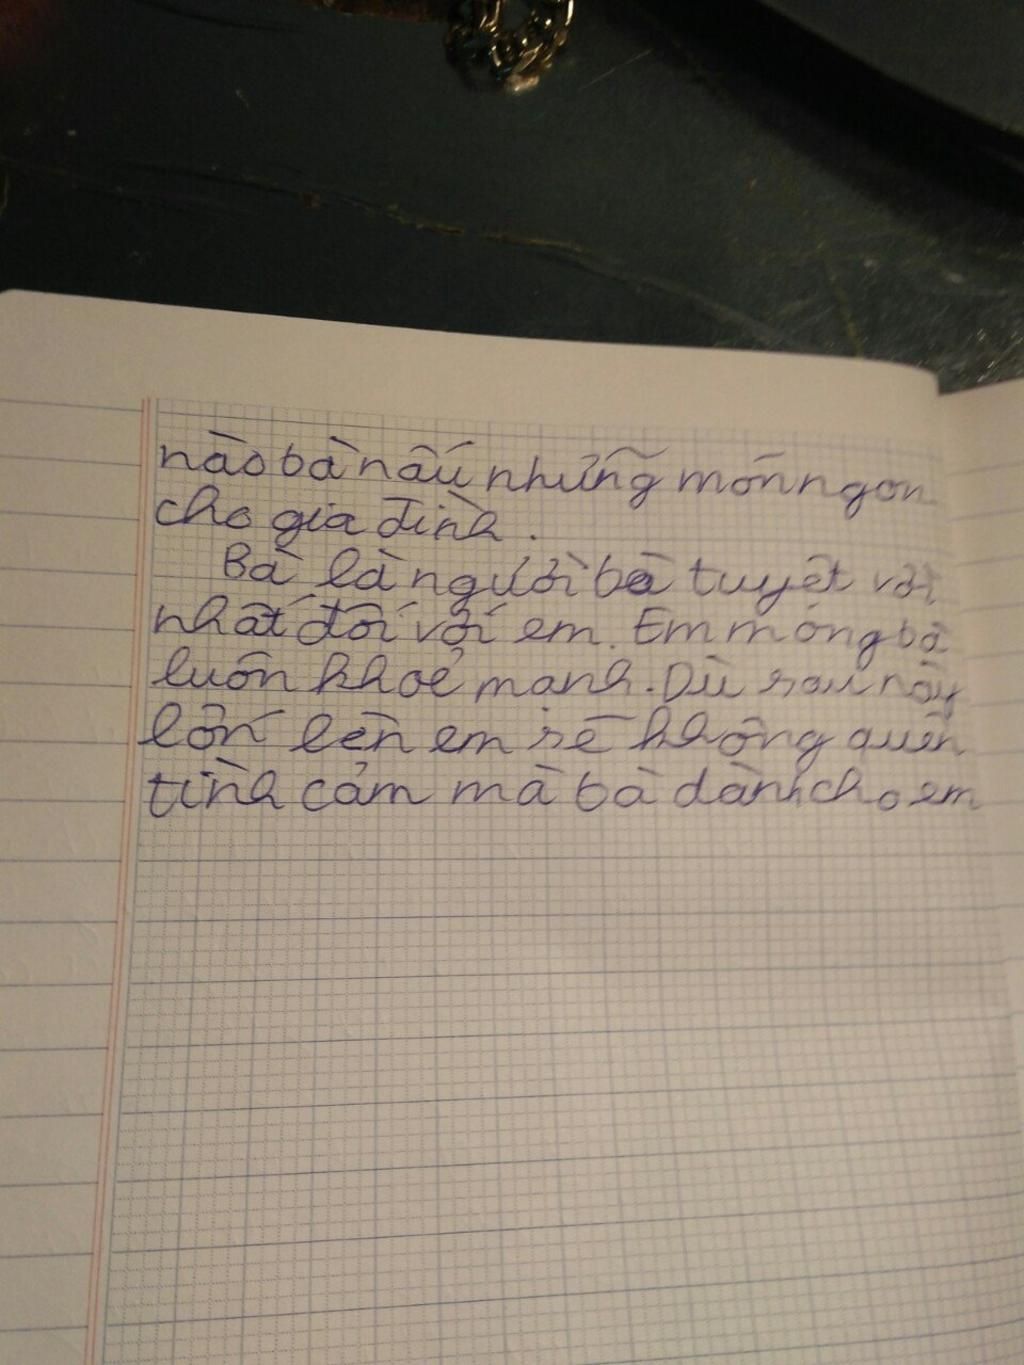 nào bà nấu những món ngon
cho gia đình.
Bà là người bà tuyệt vời
nhất đối với em. Em mong bà
luôn khoẻ mạnh. Dù sau này
lớn lên em sẽ không quên
tình cảm mà bà dành cho em